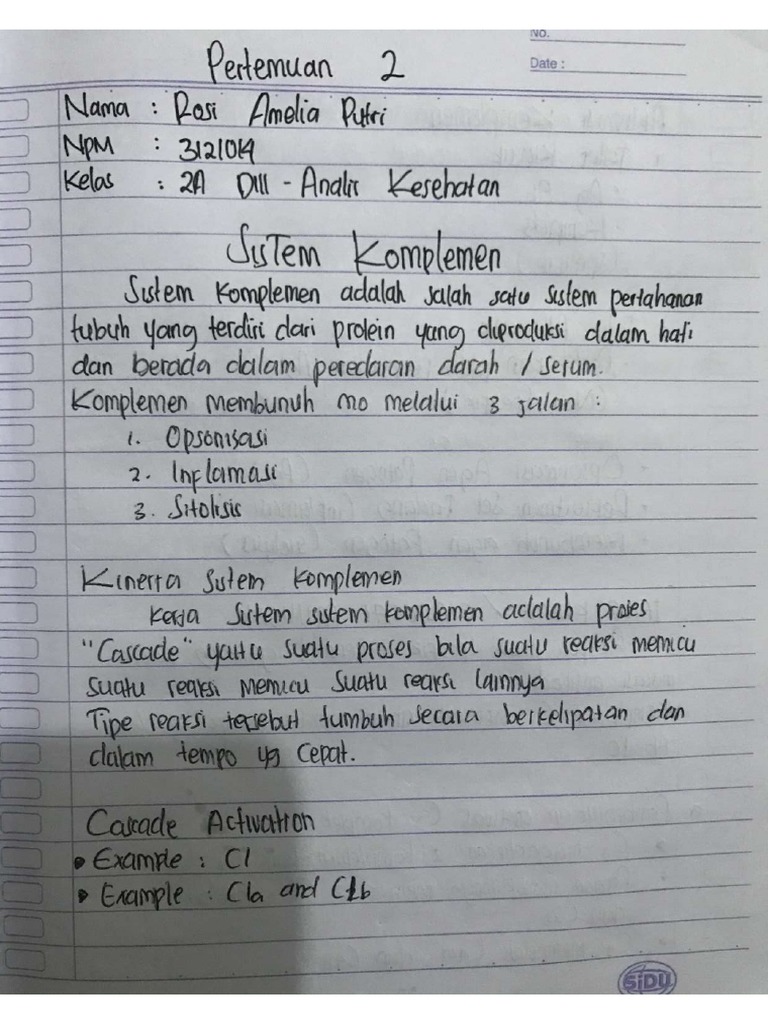 No.
Date :
Pertemuan 2
Nama : Rosi Amelia Putri
NPM : 3121014
Kelas : 2A DIII - Analis Kesehatan
Sistem Komplemen
Sistem Komplemen adalah salah satu sistem pertahanan
tubuh yang terdiri dari protein yang diproduksi dalam hati
dan berada dalam peredaran darah / serum.
Komplemen membunuh mo melalui 3 jalan :
1. Opsonisasi
2. Inflamasi
3. Sitolisis
Kinerja Sistem Komplemen
Kerja Sistem sistem komplemen adalah proses
"Cascade" yaitu suatu proses bila suatu reaksi memicu
suatu reaksi memicu suatu reaksi lainnya
Tipe reaksi tersebut tumbuh secara berkelipatan dan
dalam tempo yg cepat.
Cascade Activation
• Example : C1
• Example : C1a and C1b
SiDU